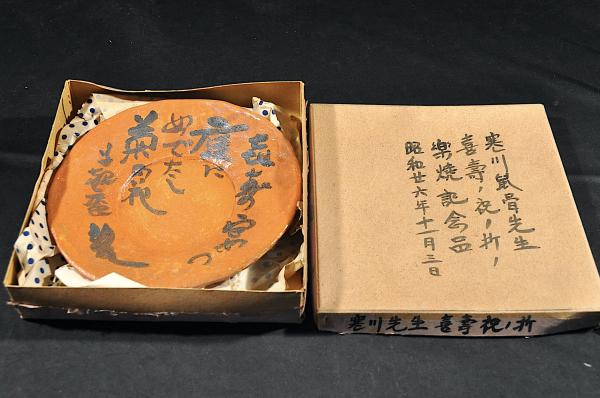 喜寿の家つ
産に
めでたし
菊の花
寒川鼠骨先生
喜壽ノ祝ノ折ノ
楽焼記念品
昭和廿六年十一月三日
寒川先生喜壽祝ノ折